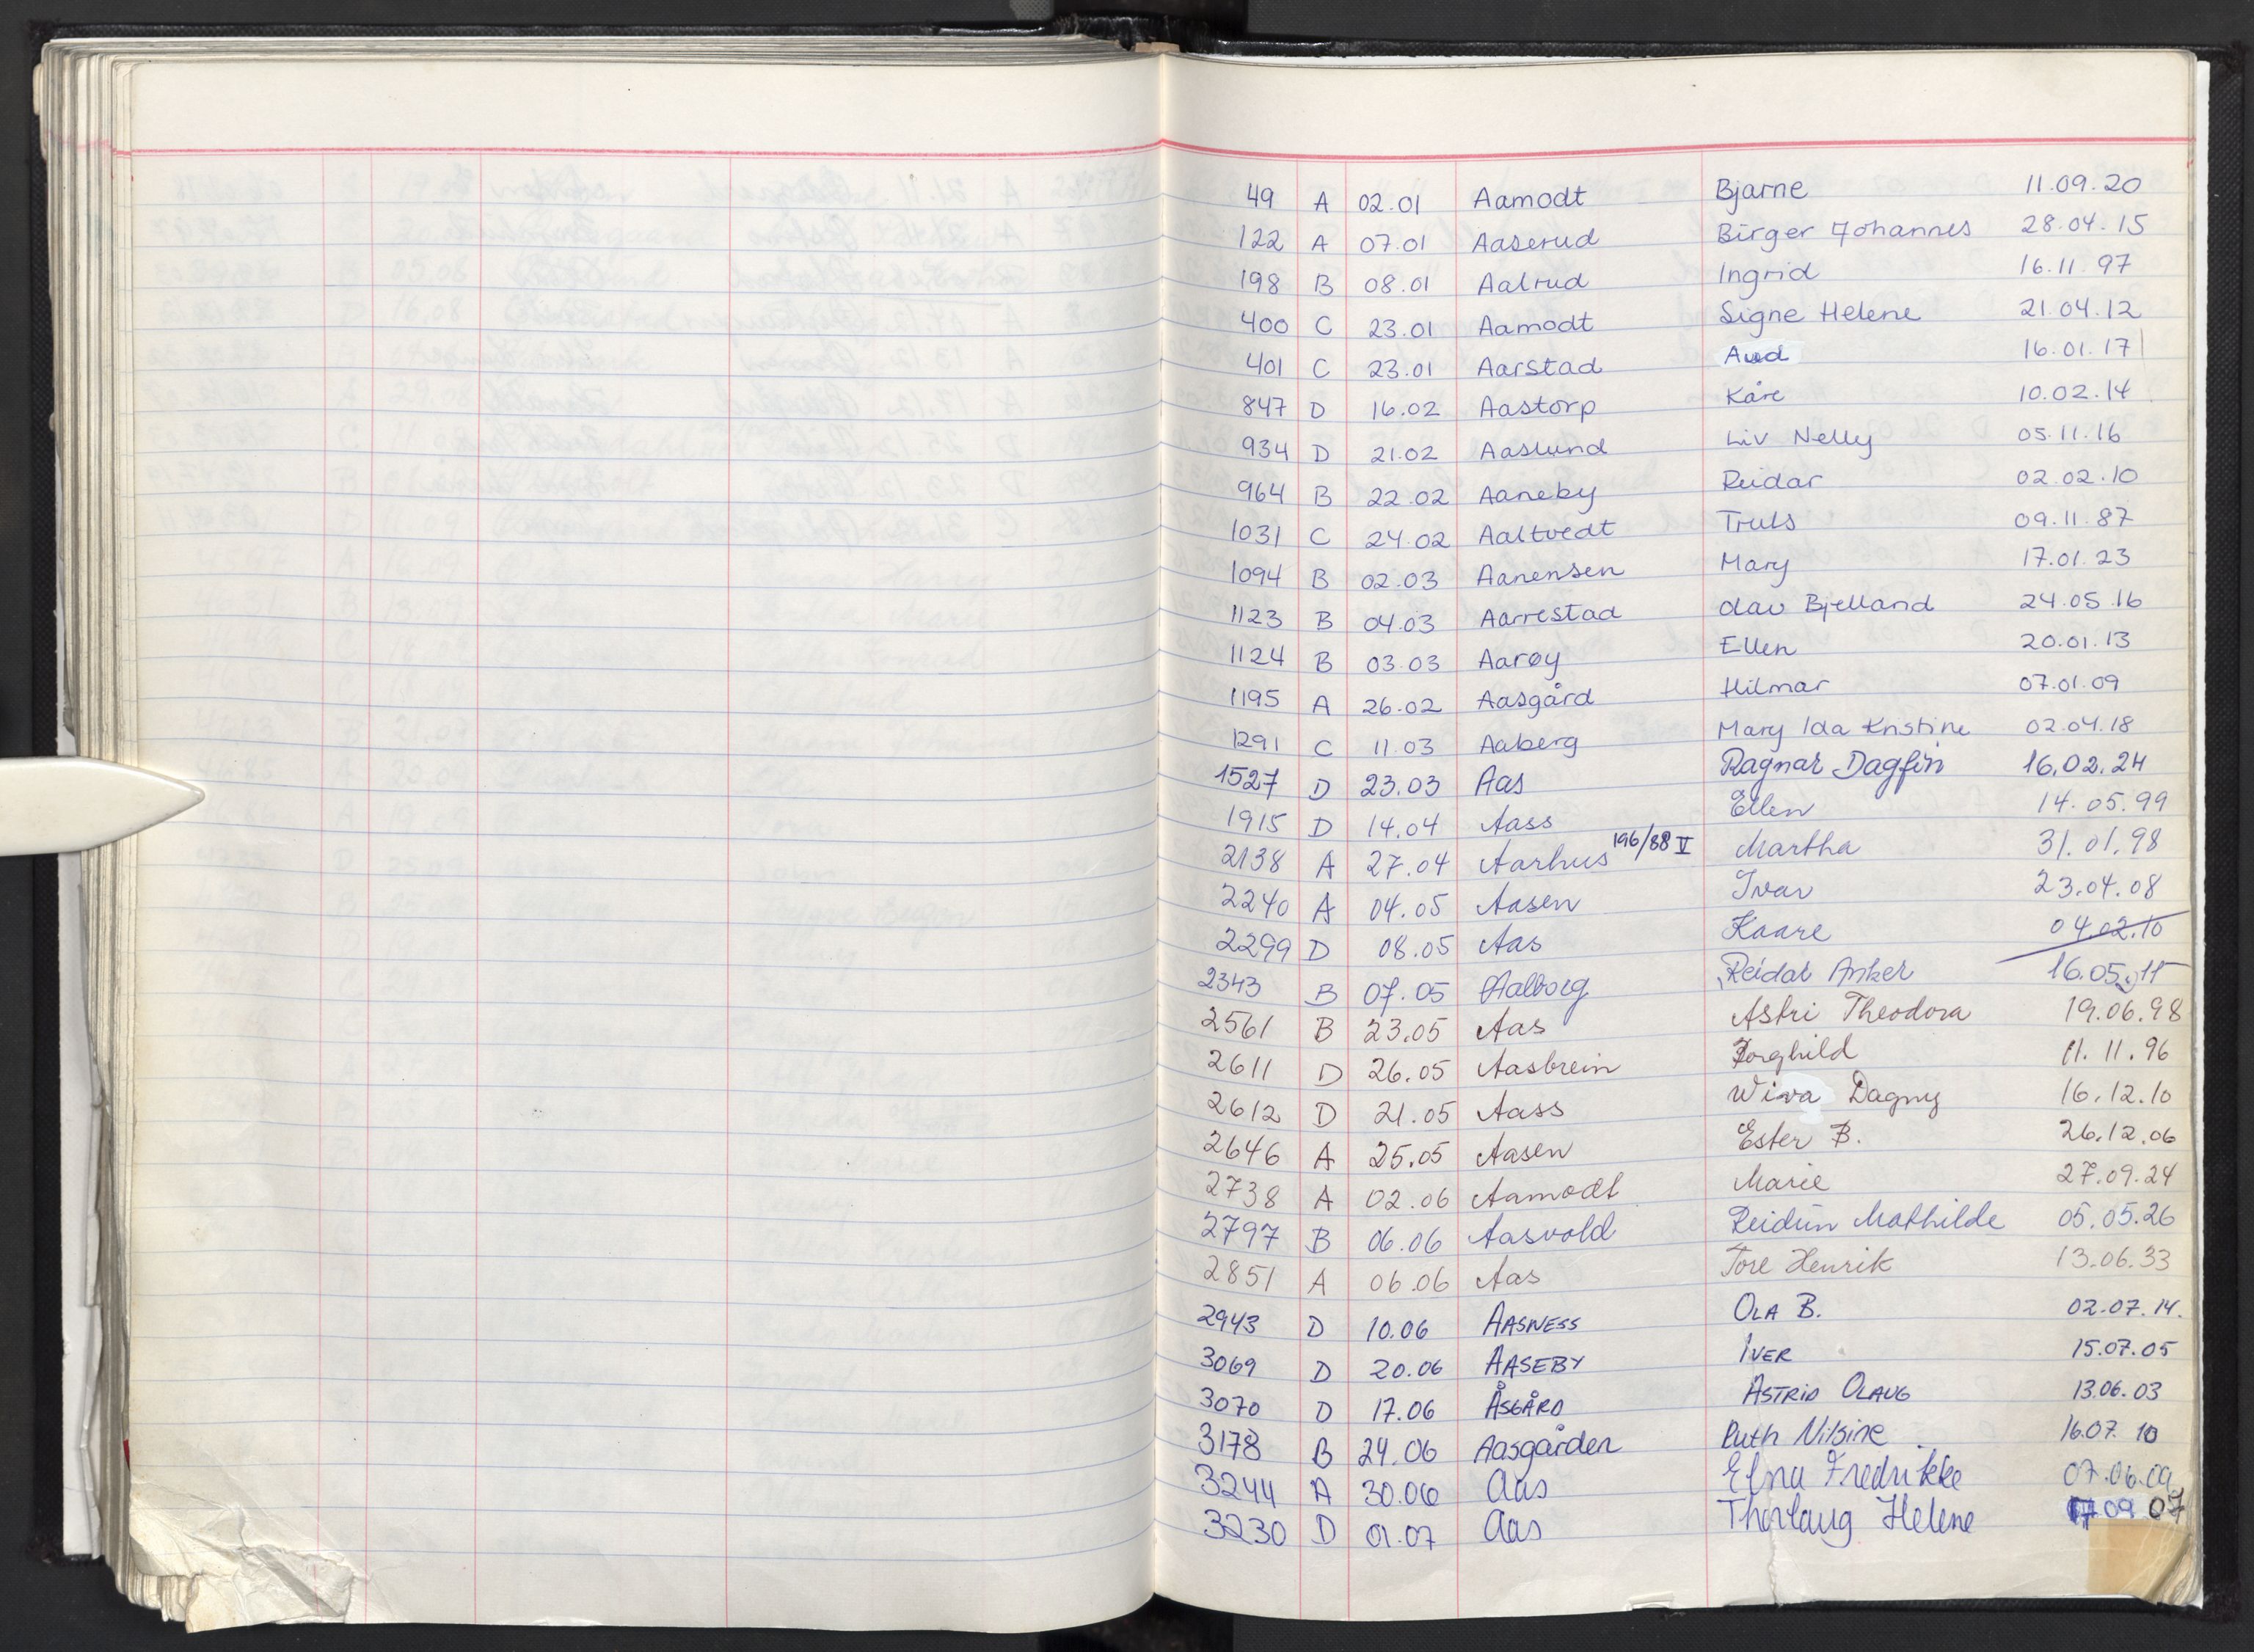 49 A 02.01 Aamodt Bjarne 11.09.20
122 A 07.01 Aaserud Birger Johannes 28.04.15
198 B 08.01 Aalrud Ingrid 16.11.97
400 C 23.01 Aamodt Signe Helene 21.04.12
401 C 23.01 Aarstad Aud 16.01.17
847 D 16.02 Aastorp Kåre 10.02.14
934 D 21.02 Aaslund Liv Nelly 05.11.16
964 B 22.02 Aaneby Reidar 02.02.10
1031 C 24.02 Aaltvedt Truls 09.11.87
1094 B 02.03 Aanensen Mary 17.01.23
1123 B 04.03 Aarrestad Olav Bjelland 24.05.16
1124 B 03.03 Aarøy Ellen 20.01.13
1195 A 26.02 Aasgård Hilmar 07.01.09
1291 C 11.03 Aaberg Mary Ida Kristine 02.04.18
1527 D 23.03 Aas Ragnar Dagfin 16.02.24
1915 D 14.04 Aass Ellen 14.05.99
2138 A 27.04 Aarhus 196/88 V Martha 31.01.98
2240 A 04.05 Aasen Ivar 23.04.08
2299 D 08.05 Aas Kaare 04.02.10
2343 B 07.05 Aalborg Reidar Anker 16.05.11
2561 B 23.05 Aas Astri Theodora 19.06.98
2611 D 26.05 Aasbrein Borghild 11.11.96
2612 D 21.05 Aass Wiva Dagny 16.12.10
2646 A 25.05 Aasen Ester B. 26.12.06
2738 A 02.06 Aamodt Marie 27.09.24
2797 B 06.06 Aasvold Reidun Mathilde 05.05.26
2851 A 06.06 Aas Tore Henrik 13.06.33
2943 D 10.06 AASNESS OLA B. 02.07.14.
3069 D 20.06 AASEBY IVER 15.07.05
3070 D 17.06 ÅSGÅRD ASTRID OLAUG 13.06.03
3178 B 24.06 Aasgården Ruth Nilsine 16.07.10
3244 A 30.06 Aas Edna Fredrikke 07.06.09
3230 D 01.07 Aas Thorlaug Helene 17.09 07